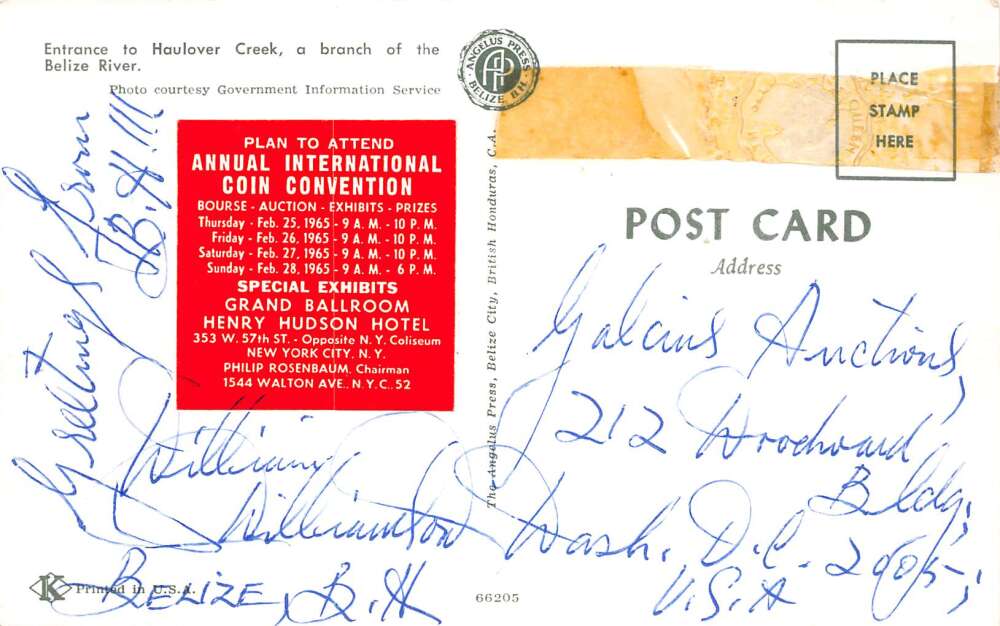 Entrance to Haulover Creek, a branch of the
Belize River.
Photo courtesy Government Information Service
ANGELUS PRESS
AP
BELIZE B.H.
PLACE
STAMP
HERE
PLAN TO ATTEND
ANNUAL INTERNATIONAL
COIN CONVENTION
BOURSE - AUCTION - EXHIBITS - PRIZES
Thursday - Feb. 25, 1965 - 9 A. M. - 10 P. M.
Friday - Feb. 26, 1965 - 9 A. M. - 10 P. M.
Saturday - Feb. 27, 1965 - 9 A. M. - 10 P. M.
Sunday - Feb. 28, 1965 - 9 A. M. - 6 P. M.
SPECIAL EXHIBITS
GRAND BALLROOM
HENRY HUDSON HOTEL
353 W. 57th ST. - Opposite N. Y. Coliseum
NEW YORK CITY, N. Y.
PHILIP ROSENBAUM, Chairman
1544 WALTON AVE., N.Y.C. 52
Greetings from
B.H!!!
William
Williamson
BELIZE, B.H
The Angelus Press, Belize City, British Honduras, C.A.
POST CARD
Address
Auctions,
212 Woodward
Bldg.,
Wash. D.C.
U.S.A
K
Printed in U.S.A.
66205